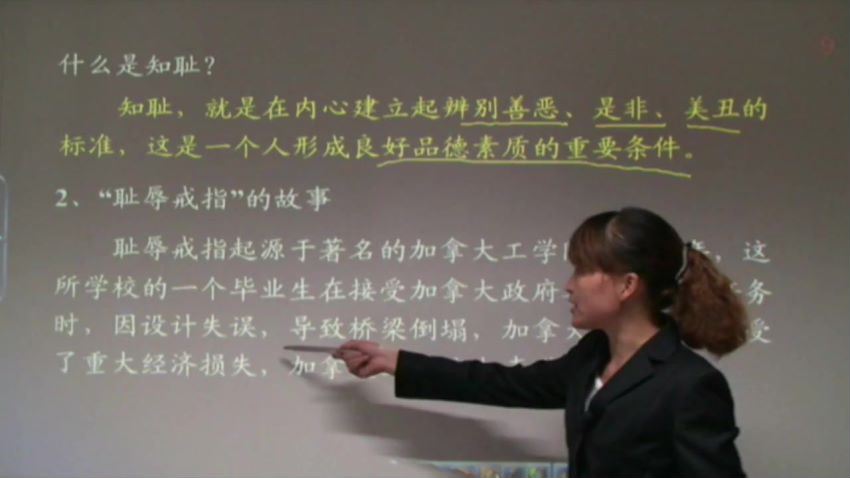 9
什么是知耻？
知耻，就是在内心建立起辨别善恶、是非、美丑的
标准，这是一个人形成良好品德素质的重要条件。
2、“耻辱戒指”的故事
耻辱戒指起源于著名的加拿大工学，这
所学校的一个毕业生在接受加拿大政府务
时，因设计失误，导致桥梁倒塌，加拿受
了重大经济损失，加拿